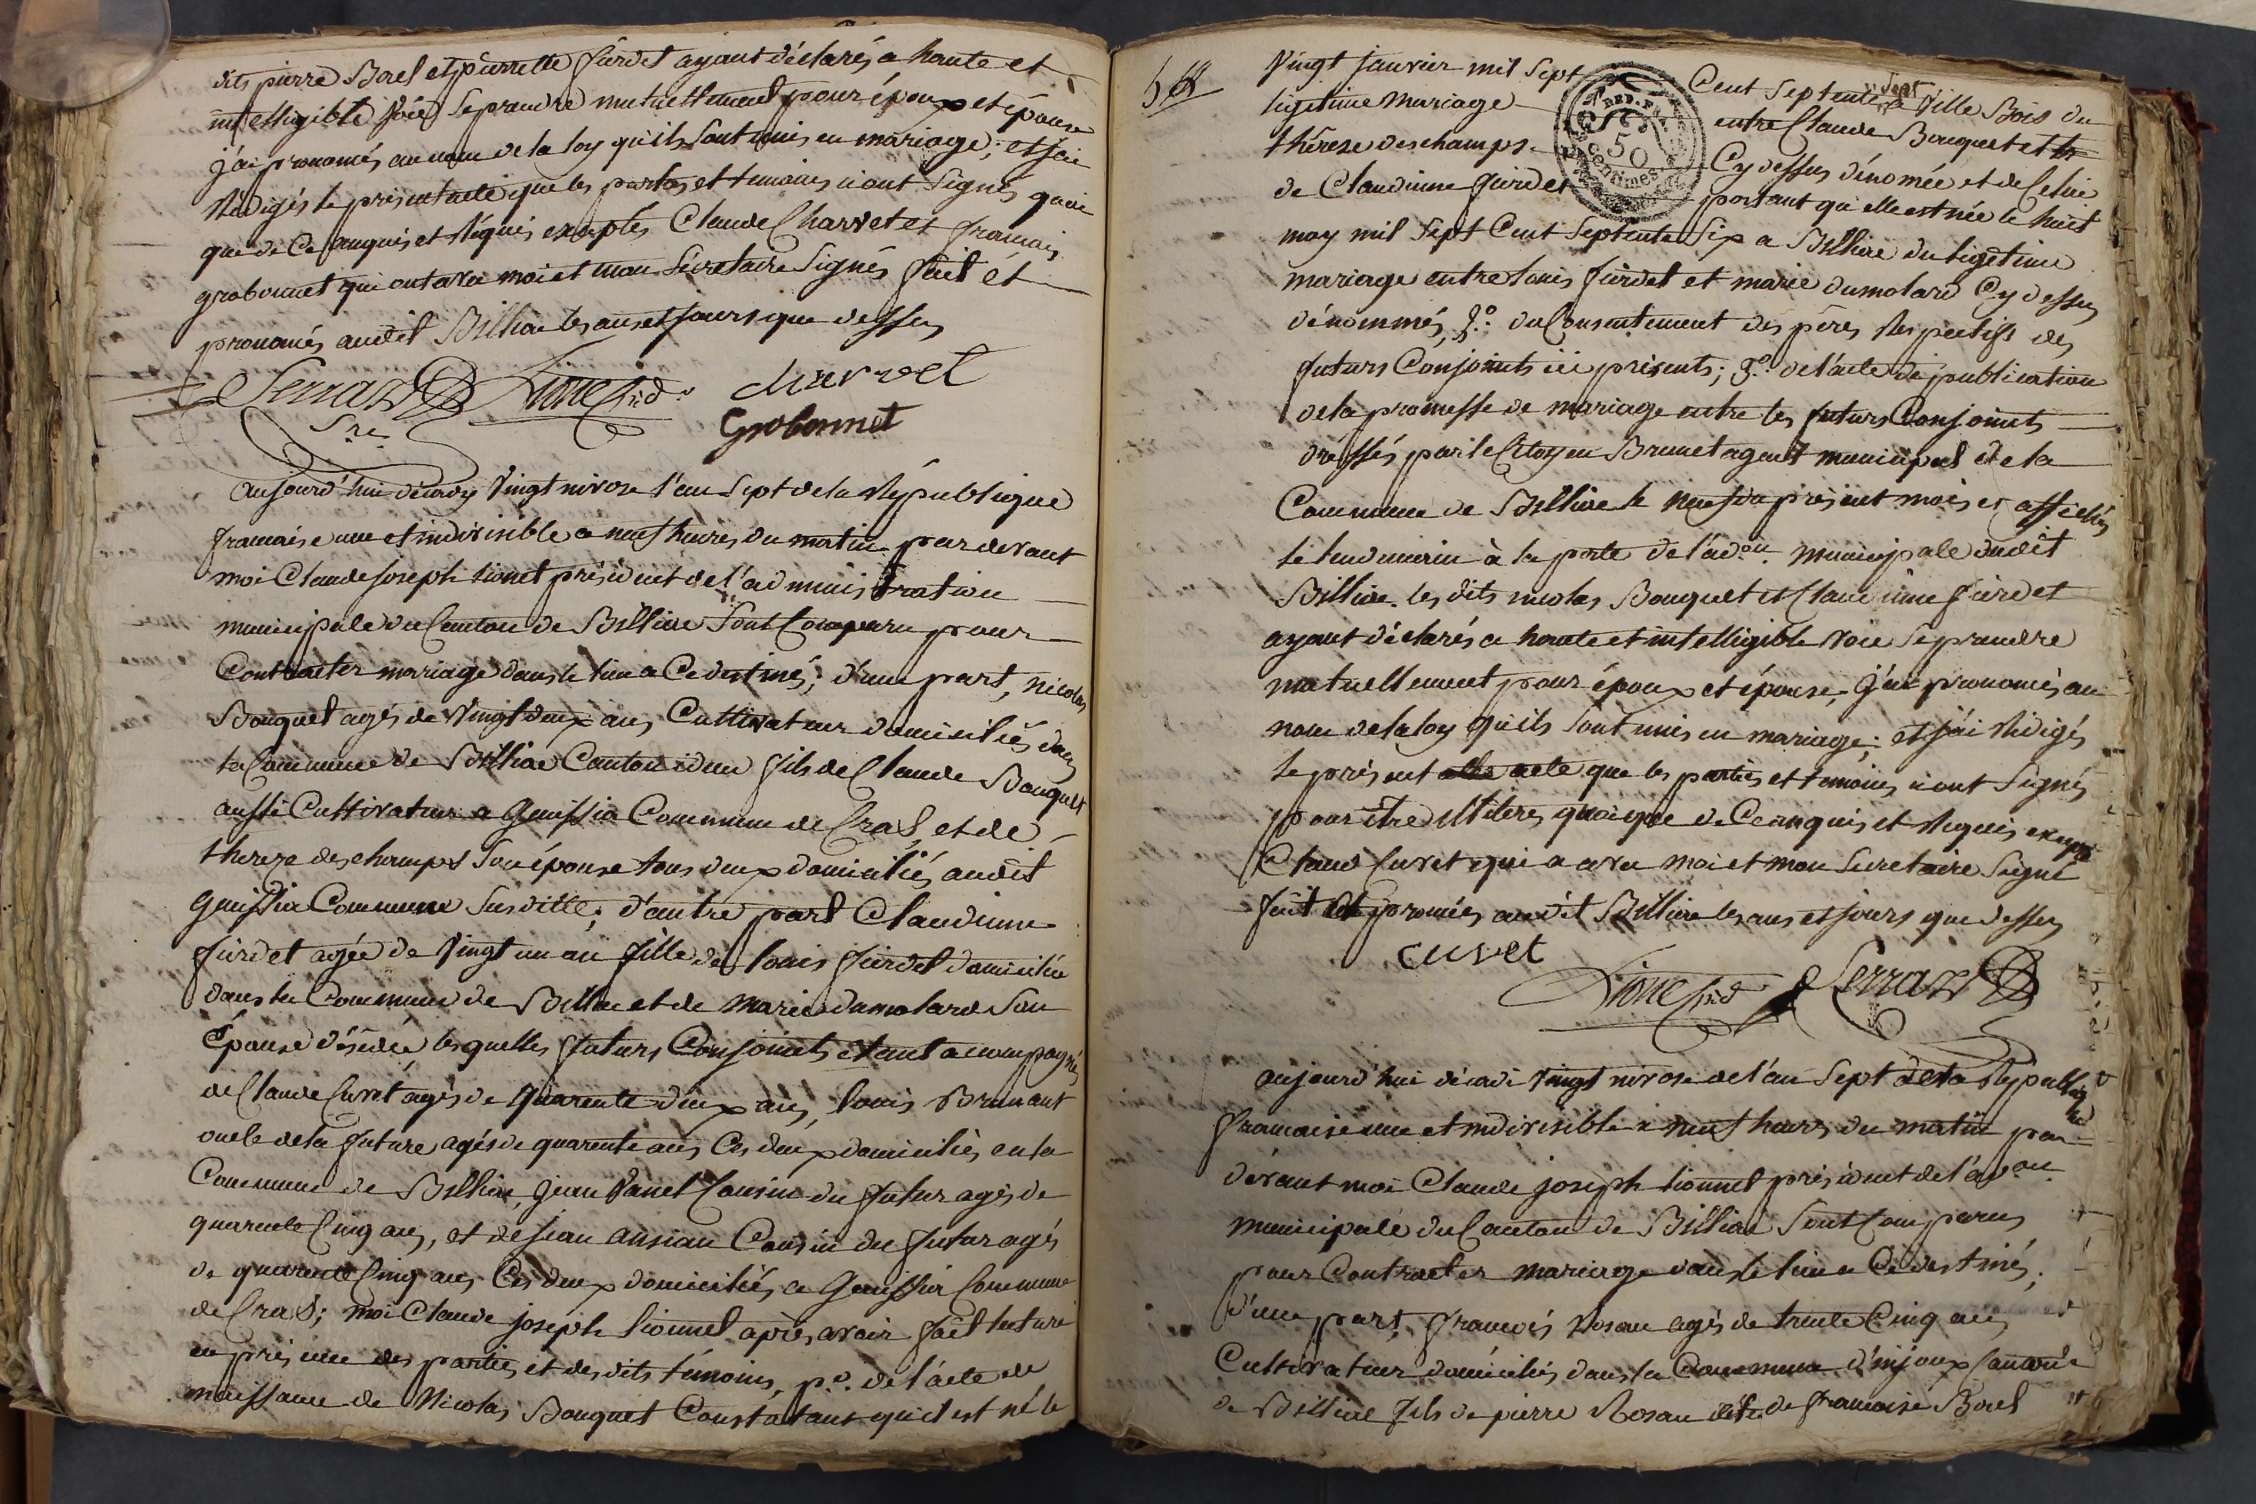 dits pierre Borel et pierrette Jurdet ayant déclarés a haute et
intelligible voie Se prendre mutuellement pour époux et épouse
j'ai pronomés au nom de la loy qu'ils Sont unis en mariage; et jai
Rédigés le présent acte que les parties et temoins n'ont Signés quoi
que de Ce enquis et Réquis exceptés Claude Charvet et francois
grobonnet qui ont avec moi et mon Sécretaire Signés fait et
pronomés audit Billiat les ans et Jours que dessus
Serraz Lionet prd. charvet
Sre. Grobonnet
aujourd'hui décady Vingt nivose l'an Sept de la République
francaise une et indivisible a neuf heures du matin par devant
moi Claude Joseph Lionet président de l'administration
municipale du Canton de Billiat Sont Comparu pour
Contracter mariage dans le lieu a Ce destinés; d'une part, nicolas
Bouquet agés de Vingt deux ans Cultivateur domiciliés dans
la Commune de Billiat Canton idem fils de Claude Bouquet
aussi Cultivateur a Genissia Commune de Cras, et de
thereze deschamps Son épouse tous deux domiciliés audit
Genissia Commune Susditte; d'autre part Claudinne
Jurdet agée de Vingt un an fille de louis Jurdet domiciliée
dans la Commune de Billiat et de marie dumolard Son
Épouse désédée lesquelles futurs Conjoints étant acompagnés
de Claude Curet agés de quarente deux ans, louis Brunant
oncle de la future agés de quarente ans Ces deux domiciliés en la
Commune de Billiat, Jean Vanel Cousin du futur agés de
quarente Cinq ans, et de Jean ansian Cousin du futur agés
de quarente Cinq ans Ces deux domiciliés a Genissia Commune
de Cras; moi Claude joseph lionnet après avoir fait lecture
en présence des parties et desdits témoins, p.o de l'acte de
naissance de Nicolas Bouquet Constatant qu'il est né le
Vingt Janvier mil Sept Cent Septente Sept a Ville Bois du
ligetime mariage entre Claude Bouquet et
thérese deschamps Cy dessus dénomée et de Celui
REP. F.
50
centimes
de Claudinne Jurdet portant qu'elle est née le huit
may mil Sept Cent Septente Six a Billiat du ligetime
mariage entre louis Jurdet et marie dumolard Cy dessus
dénommés, 2.o du Consentement des péres Respectifs des
futurs Conjoints ici présents; 3.o de l'acte de publication
de la promesse de mariage entre les futurs Conjoints
dréssés par le Citoyen Brunet agent municipal de la
Commune de Billiat le neuf du présent mois et affichés
le lendemain à la porte de l'adon. municipale dudit
Billiat. les dits nicolas Bouquet et Claudinne Jurdet
ayant déclarés a haute et intelligible voie Se prendre
mutuellement pour époux et épouse, j'ai pronomés au
nom de la loy qu'ils Sont unis en mariage; et j'ai Rédigés
le présent acte que les parties et temoins n'ont Signés
pour être illiteres, quoique de Ce enquis et Requis excepté
Claude Curet qui a avec moi et mon Secretaire Signé
fait et promés audit Billiat les ans et jours que dessus
curet
Lionet prd Serraz
aujourd'hui décadi Vingt nivose de l'an Sept de la République
francaise une et indivisible a neuf heures du matin par
devant moi Claude joseph lionnet président de l'adon.
municipale du Canton de Billiat Sont Comparus
pour Contracter mariage dans le lieu a Ce destinés;
d'une part, francois Rosan agés de trente Cinq ans
Cultivateur domiciliés dans la Commune d'injoux Canton
de Billiat fils de pierre Rosan et de francoise Borel